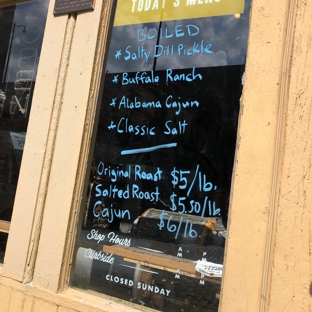 TODAY'S MENU
BOILED
* Salty Dill Pickle
* Buffalo Ranch
* Alabama Cajun
* Classic Salt
Original Roast $5/lb.
Salted Roast $5.50/lb.
Cajun $6/lb.
Shop Hours
Curbside
CLOSED SUNDAY